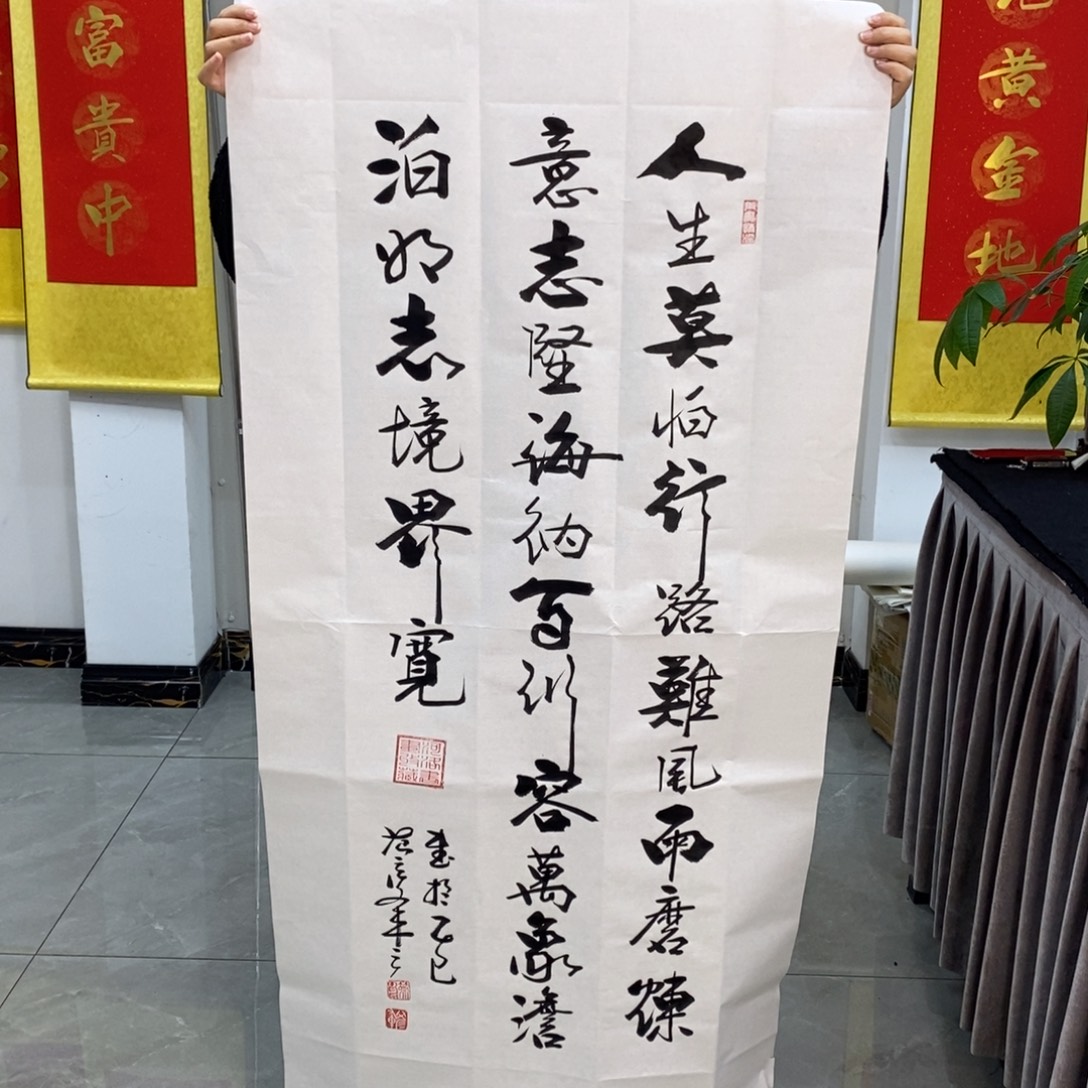 黄金地
人生莫怕行路難風雨磨煉
意志堅海納百川容萬象澹
泊明志境界寬
書於乙巳
富貴中